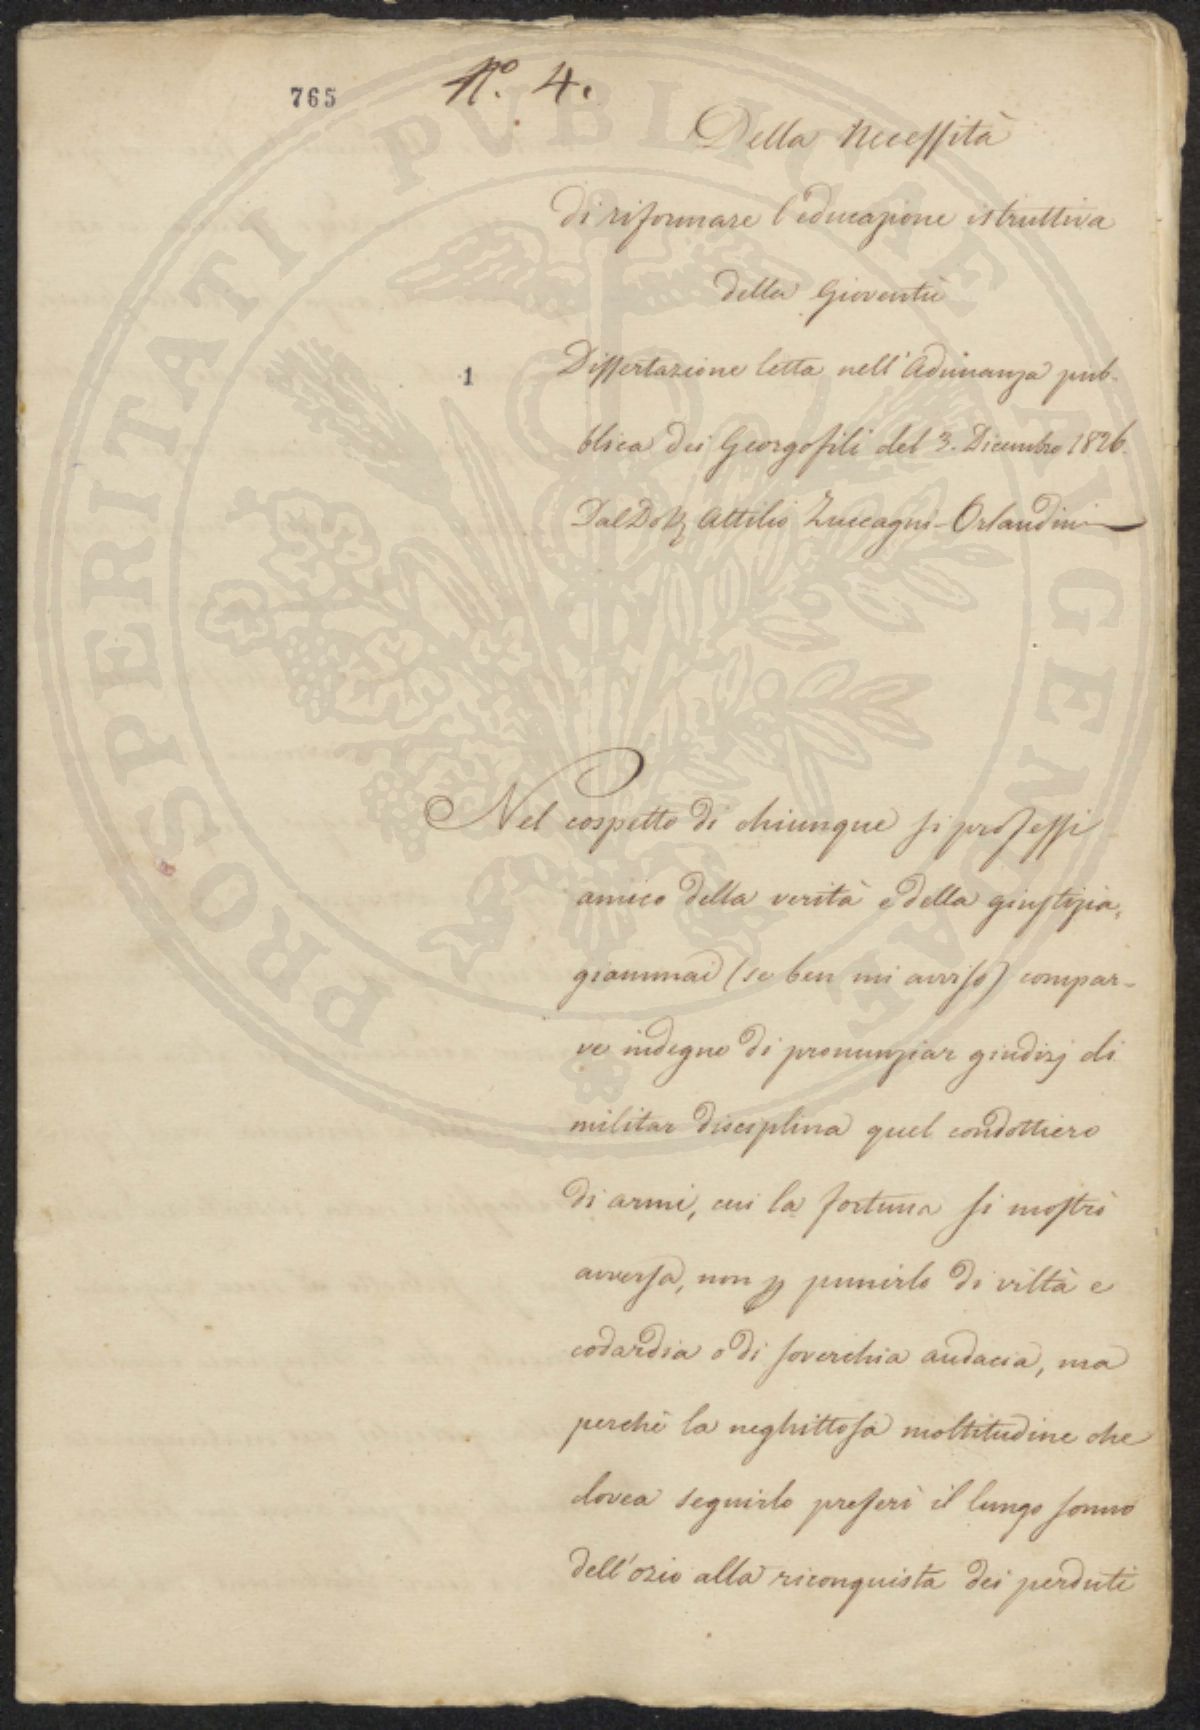 765
N.º 4.
Della Necessità
di riformare l'educazione istruttiva
della Gioventù
1
Dissertazione letta nell'Adunanza pub-
blica dei Georgofili del 3. Dicembre 1826.
Dal Dott Attilio Zuccagni-Orlandini
Nel cospetto di chiunque si professi
amico della verità e della giustizia,
giammai (se ben mi avviso) compar-
ve indegno di pronunziar giudizj di
militar disciplina quel condottiero
di armi, cui la fortuna si mostrò
avversa, non p punirlo di viltà e
codardia o di soverchia audacia, ma
perchè la neghittosa moltitudine che
dovea seguirlo preferì il lungo sonno
dell'ozio alla riconquista dei perduti
PROSPERITATI PVBLICAE AVGENDAE